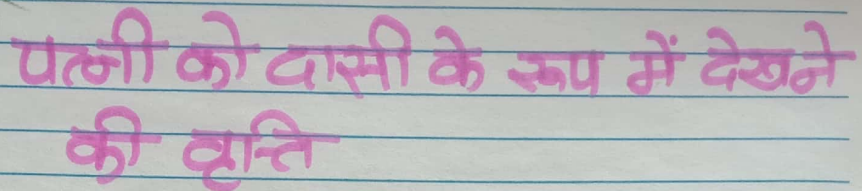 पत्नी को दासी के रूप में देखने
की वृत्ति